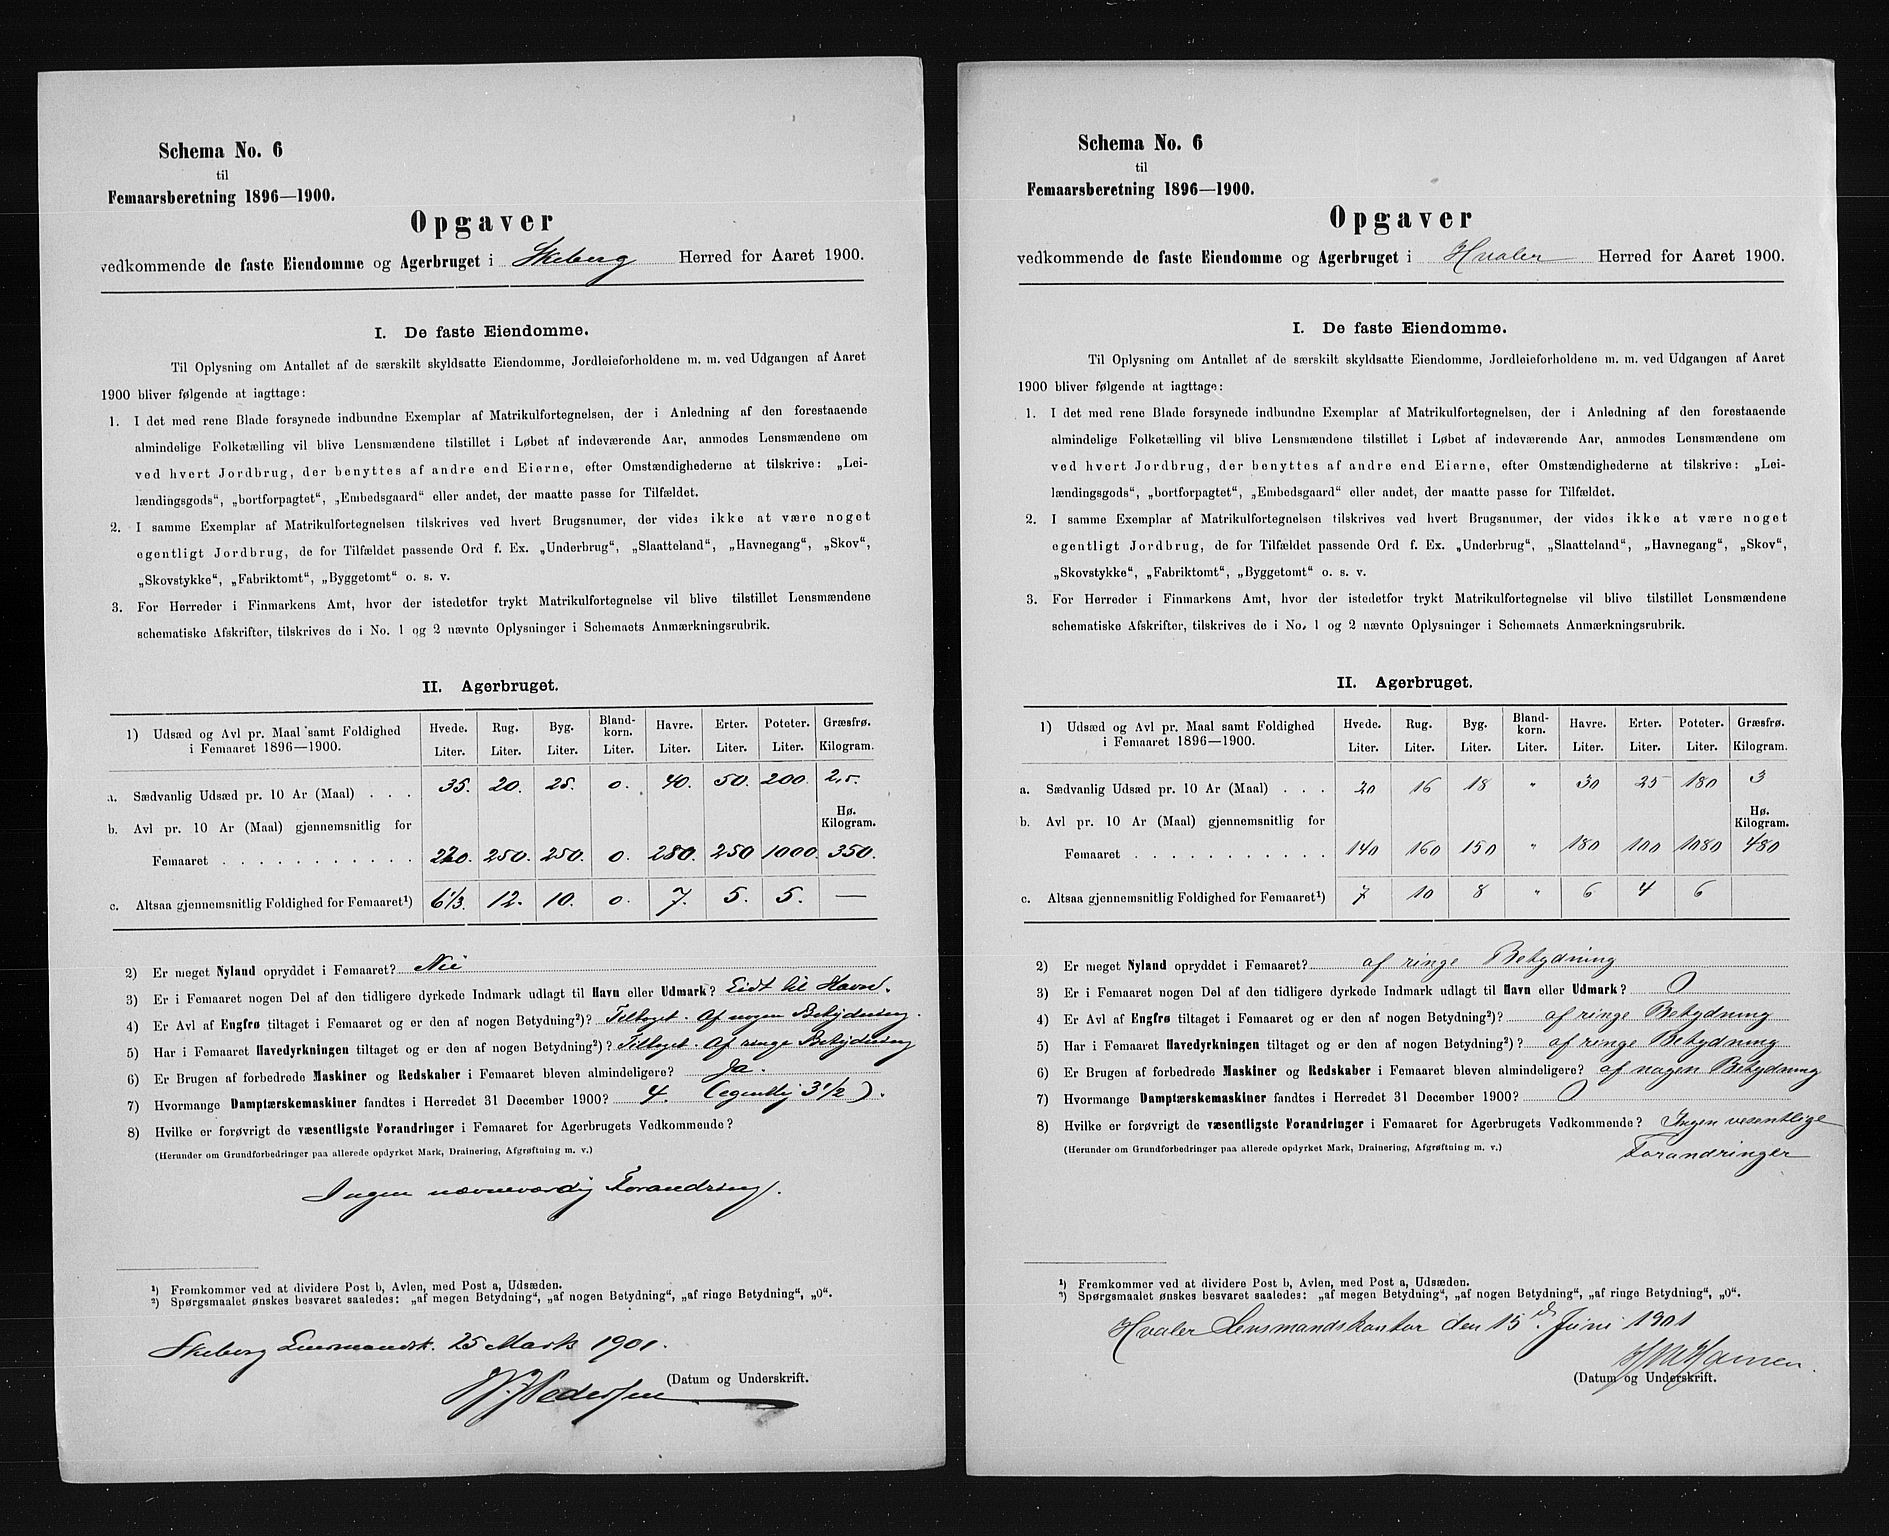 Schema No. 6
til
Femaarsberetning 1896—1900.
Opgaver
vedkommende de faste Eiendomme og Agerbruget i Skeberg Herred for Aaret 1900.
I. De faste Eiendomme.
Til Oplysning om Antallet af de særskilt skyldsatte Eiendomme, Jordleieforholdene m. m. ved Udgangen af Aaret
1900 bliver følgende at iagttage:
1. I det med rene Blade forsynede indbundne Exemplar af Matrikulfortegnelsen, der i Anledning af den forestaaende
almindelige Folketælling vil blive Lensmændene tilstillet i Løbet af indeværende Aar, anmodes Lensmændene om
ved hvert Jordbrug, der benyttes af andre end Eierne, efter Omstændighederne at tilskrive: „Lei-
lændingsgods“, „bortforpagtet“, „Embedsgaard“ eller andet, der maatte passe for Tilfældet.
2. I samme Exemplar af Matrikulfortegnelsen tilskrives ved hvert Brugsnumer, der vides ikke at være noget
egentligt Jordbrug, de for Tilfældet passende Ord f. Ex. „Underbrug“, „Slaatteland“, „Havnegang“, „Skov“,
„Skovstykke“, „Fabriktomt“, „Byggetomt“ o. s. v.
3. For Herreder i Finmarkens Amt, hvor der istedetfor trykt Matrikulfortegnelse vil blive tilstillet Lensmændene
schematiske Afskrifter, tilskrives de i No. 1 og 2 nævnte Oplysninger i Schemaets Anmærkningsrubrik.
II. Agerbruget.
1) Udsæd og Avl pr. Maal samt Foldighed i Femaaret 1896—1900. Hvede. Liter. Rug. Liter. Byg. Liter. Bland-korn. Liter. Havre. Liter. Erter. Liter. Poteter. Liter. Græsfrø. Kilogram.
a. Sædvanlig Udsæd pr. 10 Ar (Maal) . . . 35. 20. 25. 0. 40. 50. 200. 2,5.
b. Avl pr. 10 Ar (Maal) gjennemsnitlig for Hø. Kilogram.
Femaaret . . . . . . . . . . . 220. 250. 250. 0. 280. 250 1000. 350.
c. Altsaa gjennemsnitlig Foldighed for Femaaret¹) 6 1/3. 12. 10. 0. 7. 5. 5. —
2) Er meget Nyland opryddet i Femaaret? Nei
3) Er i Femaaret nogen Del af den tidligere dyrkede Indmark udlagt til Havn eller Udmark? Lidt til Havn.
4) Er Avl af Engfrø tiltaget i Femaaret og er den af nogen Betydning²)? Tiltaget. Af nogen Betydning.
5) Har i Femaaret Havedyrkningen tiltaget og er den af nogen Betydning²)? Tiltaget. Af ringe Betydning
6) Er Brugen af forbedrede Maskiner og Redskaber i Femaaret bleven almindeligere? Ja.
7) Hvormange Damptærskemaskiner fandtes i Herredet 31 December 1900? 4. (egentlig 3 1/2).
8) Hvilke er forøvrigt de væsentligste Forandringer i Femaaret for Agerbrugets Vedkommende?
(Herunder om Grundforbedringer paa allerede opdyrket Mark, Drainering, Afgrøftning m. v.)
Ingen nævneværdig Forandring.
¹) Fremkommer ved at dividere Post b, Avlen, med Post a, Udsæden.
²) Spørgsmaalet ønskes besvaret saaledes: „af megen Betydning“, „af nogen Betydning“, „af ringe Betydning“, „0“.
Skeberg Lensmandsk. 25 Marts 1901.
Pedersen
(Datum og Underskrift.
Schema No. 6
til
Femaarsberetning 1896—1900.
Opgaver
vedkommende de faste Eiendomme og Agerbruget i Hvaler Herred for Aaret 1900.
I. De faste Eiendomme.
Til Oplysning om Antallet af de særskilt skyldsatte Eiendomme, Jordleieforholdene m. m. ved Udgangen af Aaret
1900 bliver følgende at iagttage:
1. I det med rene Blade forsynede indbundne Exemplar af Matrikulfortegnelsen, der i Anledning af den forestaaende
almindelige Folketælling vil blive Lensmændene tilstillet i Løbet af indeværende Aar, anmodes Lensmændene om
ved hvert Jordbrug, der benyttes af andre end Eierne, efter Omstændighederne at tilskrive: „Lei-
lændingsgods“, „bortforpagtet“, „Embedsgaard“ eller andet, der maatte passe for Tilfældet.
2. I samme Exemplar af Matrikulfortegnelsen tilskrives ved hvert Brugsnumer, der vides ikke at være noget
egentligt Jordbrug, de for Tilfældet passende Ord f. Ex. „Underbrug“, „Slaatteland“, „Havnegang“, „Skov“,
„Skovstykke“, „Fabriktomt“, „Byggetomt“ o. s. v.
3. For Herreder i Finmarkens Amt, hvor der istedetfor trykt Matrikulfortegnelse vil blive tilstillet Lensmændene
schematiske Afskrifter, tilskrives de i No. 1 og 2 nævnte Oplysninger i Schemaets Anmærkningsrubrik.
II. Agerbruget.
1) Udsæd og Avl pr. Maal samt Foldighed i Femaaret 1896—1900. Hvede. Liter. Rug. Liter. Byg. Liter. Bland-korn. Liter. Havre. Liter. Erter. Liter. Poteter. Liter. Græsfrø. Kilogram.
a. Sædvanlig Udsæd pr. 10 Ar (Maal) . . . 20 16 18 „ 30 25 180 3
b. Avl pr. 10 Ar (Maal) gjennemsnitlig for Hø. Kilogram.
Femaaret . . . . . . . . . . . 140 160 150 „ 180 100 1080 480
c. Altsaa gjennemsnitlig Foldighed for Femaaret¹) 7 10 8 „ 6 4 6
2) Er meget Nyland opryddet i Femaaret? af ringe Betydning
3) Er i Femaaret nogen Del af den tidligere dyrkede Indmark udlagt til Havn eller Udmark? 0
4) Er Avl af Engfrø tiltaget i Femaaret og er den af nogen Betydning²)? af ringe Betydning
5) Har i Femaaret Havedyrkningen tiltaget og er den af nogen Betydning²)? af ringe Betydning
6) Er Brugen af forbedrede Maskiner og Redskaber i Femaaret bleven almindeligere? af nogen Betydning
7) Hvormange Damptærskemaskiner fandtes i Herredet 31 December 1900? 0
8) Hvilke er forøvrigt de væsentligste Forandringer i Femaaret for Agerbrugets Vedkommende? Ingen vesentlige
(Herunder om Grundforbedringer paa allerede opdyrket Mark, Drainering, Afgrøftning m. v.) Forandringer
¹) Fremkommer ved at dividere Post b, Avlen, med Post a, Udsæden.
²) Spørgsmaalet ønskes besvaret saaledes: „af megen Betydning“, „af nogen Betydning“, „af ringe Betydning“, „0“.
Hvaler Lensmandskontor den 15de Juni 1901
(Datum og Underskrift.